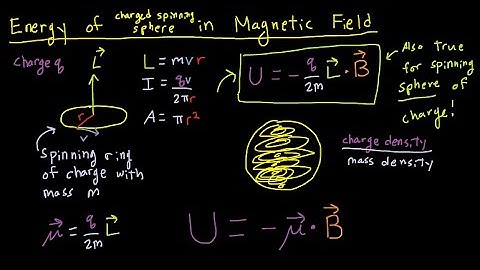 Energy of charged spinning sphere in Magnetic Field
charge q
L⃗
r
v
Spinning ring
of charge with
mass m
L = mvr
I = qv/2πr
A = πr²
U = -q/2m L⃗ · B⃗
Also true
for spinning
sphere of
charge!
charge density
mass density
μ⃗ = q/2m L⃗
U = -μ⃗ · B⃗